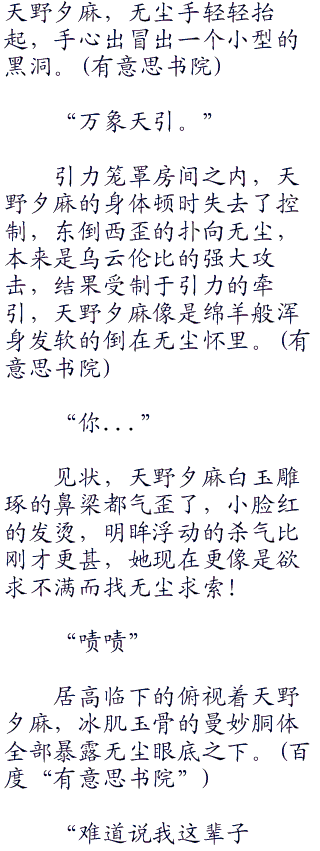 天野夕麻，无尘手轻轻抬
起，手心出冒出一个小型的
黑洞。(有意思书院)
“万象天引。”
引力笼罩房间之内，天
野夕麻的身体顿时失去了控
制，东倒西歪的扑向无尘，
本来是乌云伦比的强大攻
击，结果受制于引力的牵
引，天野夕麻像是绵羊般浑
身发软的倒在无尘怀里。(有
意思书院)
“你...”
见状，天野夕麻白玉雕
琢的鼻梁都气歪了，小脸红
的发烫，明眸浮动的杀气比
刚才更甚，她现在更像是欲
求不满而找无尘求索！
“啧啧”
居高临下的俯视着天野
夕麻，冰肌玉骨的曼妙胴体
全部暴露无尘眼底之下。(百
度“有意思书院”)
“难道说我这辈子